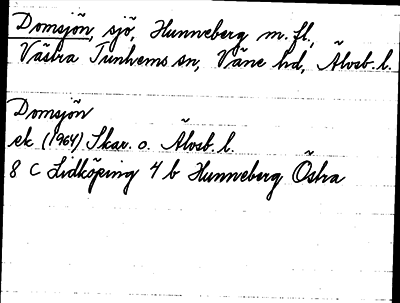 Domsjön, sjö, Hunneberg m. fl.,
Västra Tunhems sn, Väne hd, Älvsb. l.
Domsjön
ek (1964) Skar. o. Älvsb. l.
8 C Lidköping 4 b Hunneberg Östra